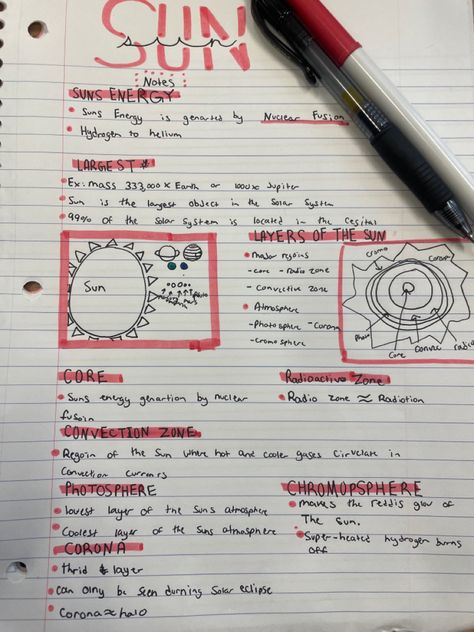 SUN
sun
Notes
SUNS ENERGY
Suns Energy is genarted by Nuclear Fusion
Hydrogen to helium
LARGEST
Ex: Mass 333,000x Earth or 1000x Jupiter
Sun is the largest object in the Solar System
99% of the Solar System is located in the
LAYERS OF THE SUN
Sun
major regoins
- core - Radio zone
- Convective zone
Atmosphere
- Photosphere - Corona
- cromosphere
Cromo
Corona
Photo
Core
Convec
radio
CORE
Suns energy genartion by nuclear
fusoin
Radioactive Zone
Radio zone ≈ Radiotion
CONVECTION ZONE
Regoin of the Sun where hot and cooler gases Cirulate in
Convection currents
PHOTOSPHERE
lowest layer of the Suns atmosphere
Coolest layer of the Suns atmosphere
CHROMOPSPHERE
makes the reddis glow of
The Sun.
Super-heated hydrogen burns
off
CORONA
thrid layer
can olny be seen durning Solar eclipse
Corona ≈ halo